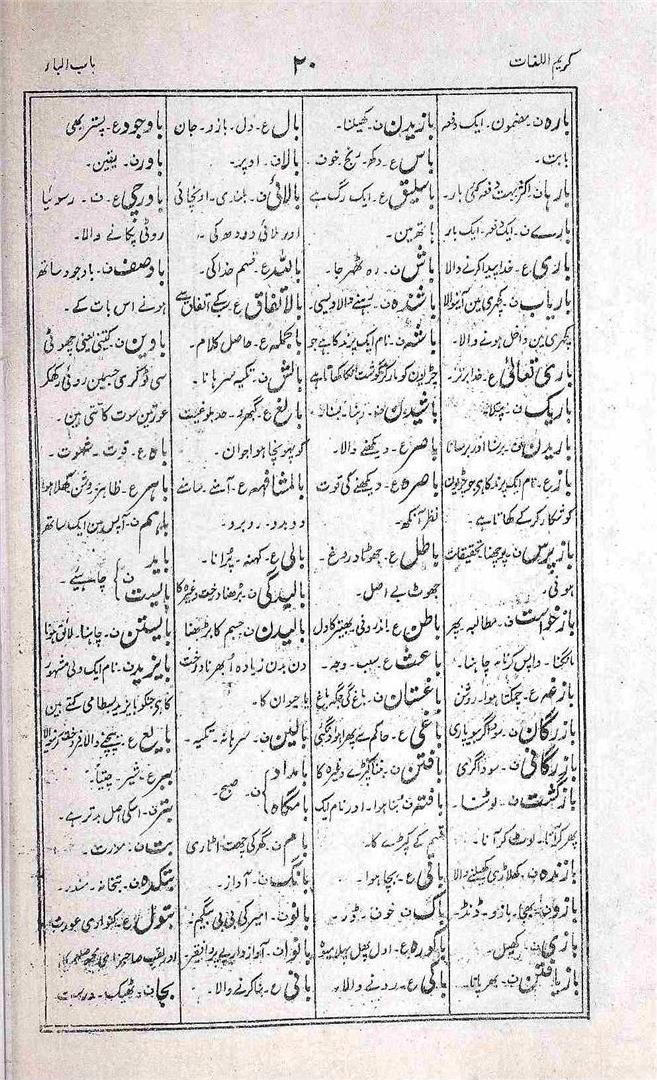 کریم اللغات
۲۰
باب الباء
بارہ ن۔ مضمون۔ ایک دفعہ
بابت۔
بارہا ن۔ اکثر بہت دفعہ کئی بار۔
بارے ن۔ ایک دفعہ۔ ایک بار
باری ع۔ خدا پیدا کرنے والا
باریاب ن۔ کچہری مین آنیوالا
کچہری مین داخل ہونے والا۔
باری تعالیٰ ع۔ خدا برتر۔
باریک ن۔ پتلا۔
باریدن ن۔ برسنا اور برسانا
باز ع۔ نام ایک پرند کا ہی جو چڑیون
کو شکار کر کے کھاتا ہے۔
باز پرس ن۔ پوچھنا۔ تحقیقات
ہونی۔
بازخواست ن۔ مطالبہ۔ پھر
مانگنا۔ واپس کرنا۔ چاہنا۔
بازغہ ع۔ چمکتا ہوا۔ روشن
بازرگان ن۔ سوداگر۔ بیوپاری
بازرگانی ن۔ سوداگری
بازگشت ن۔ لوٹنا۔
پھر کر آنا۔ لوٹ کر آنا۔
بازندہ ن۔ کھلاڑی۔ کھیلنے والا
بازو ن۔ بھجا۔ بازو۔ ڈنڈ۔
بازی ن۔ کھیل۔
بازیافتن ن۔ پھر پانا۔
بازیدن ن۔ کھیلنا۔
باس ع۔ دکھ۔ رنج۔ خوف
باسلیق ع۔ ایک رگ ہے
ہاتھ مین۔
باش ن۔ رہ ٹھہر جا۔
باشندہ ن۔ رہنے والا۔ دیسی۔
باشہ ن۔ نام ایک پرند کا ہے جو
چڑیون کو مار کر گوشت انکا کھاتا ہے
باشیدن ن۔ رہنا۔ بسنا۔
باصر ع۔ دیکھنے والا۔
باصرہ ع۔ دیکھنے کی قوت
نظر آنکھ۔
باطل ع۔ جھوٹا۔ دروغ۔
جھوٹ بے اصل۔
باطن ع۔ اندرونی۔ بھیتر کا دل
باعث ع۔ سبب۔ وجہ۔
باغستان ن۔ باغ کی جگہ باغ
باغی ع۔ حاکم سے پھرا ہوا
بافتن ن۔ بننا کپڑے وغیرہ کا
بافتہ ن۔ بنا ہوا۔ اور نام ایک
قسم کے کپڑے کا۔
باقی ع۔ بچا ہوا۔
باک ن۔ خوف۔ ڈر۔
باکورہ ع۔ اول پھل۔ پہلا میوہ
باکی ع۔ رونے والا۔
بال ع۔ دل۔ بازو۔ جان
بالا ن۔ اوپر۔
بالائی ن۔ بلندی۔ اونچائی
اور ملائی دودھ کی۔
باللہ ع۔ قسم خدا کی۔
بالاتفاق ع۔ سبکے اتفاق سے
بالجملہ ع۔ حاصل کلام۔
بالش ن۔ تکیہ۔ سرہانا۔
بالغ ع۔ حد بلوغیت
کو پہونچا ہوا۔ جوان۔
بالمشافہہ ع۔ آمنے۔ سامنے
دوبدو۔ روبرو۔
بالی ع۔ کہنہ۔ پرانا۔
بالیدگی ن۔ بڑھنا درخت وغیرہ کا
بالیدن ن۔ جسم کا بڑھنا
دن بدن زیادہ اُبھرنا درخت
یا حیوان کا۔
بالین ن۔ سرہانہ۔ تکیہ۔
بامداد
بامگاہ } ن۔ صبح۔
بام ن۔ گھر کی چھت۔ اٹاری
بانگ ن۔ آواز۔
بانو ن۔ امیر کی بی بی بیگم۔
بانوا ن۔
بانی ع۔ بنا کرنے والا۔
باوجود ع۔ پستر بھی
باور ن۔ یقین۔
باورچی ن۔ رسوئیا
روٹی پکانے والا۔
باوصف ن۔ باوجود ساتھ
ہونے اس بات کے۔
باوین ن۔ کتنی یعنی چھوٹی
سی ٹوکری جسمین روئی رکھکر
عورتین سوت کاتتی ہین۔
باہ ع۔ قوت۔ شہوت۔
باہر ع۔ ظاہر۔ روشن۔ کھلا ہوا
باہم ن۔ آپس مین ایک ساتھ
باید
بایست } ن۔ چاہیے۔
بایستن ن۔ چاہنا۔ لائق ہونا
بایزید ن۔ نام ایک ولی مشہور
کا ہی جنکو بایزید بسطامی کہتے ہین
بایع ع۔ بیچنے والا۔
ببر ع۔ شیر۔ چیتا۔
بتر ن۔ اسکی اصل بدتر ہے۔
بت ن۔ مورت۔
بتکدہ ن۔ بتخانہ۔ مندر۔
بتول ع۔ کنواری عورت
اور لقب صاحبزادی محمد صلعم کا
بجا ن۔ ٹھیک۔ درست